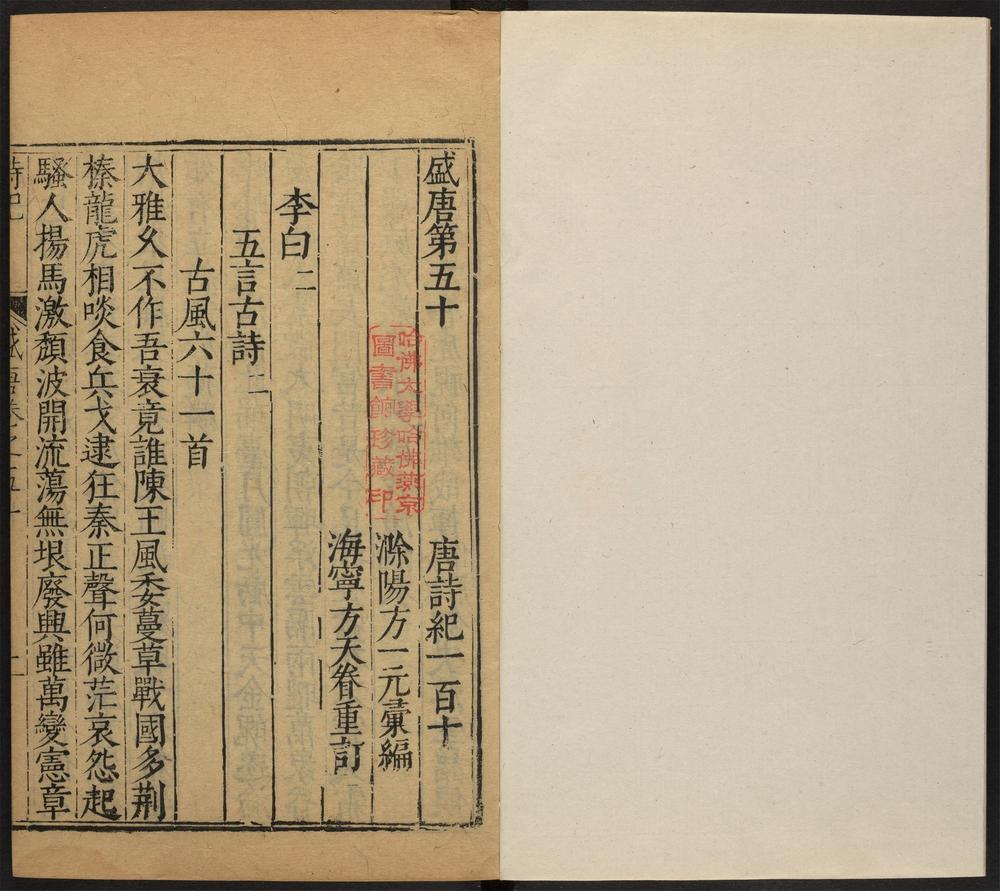 盛唐第五十 唐詩紀一百十
滁陽方一元彚編
海寧方天眷重訂
李白二
五言古詩二
古風六十一首
大雅久不作吾衰竟誰陳王風委蔓草戰國多荆
榛龍虎相啖食兵戈逮狂秦正聲何微茫哀怨起
騷人揚馬激頽波開流蕩無垠廢興雖萬變憲章
詩紀 盛唐卷之五十 一
哈佛大學哈佛燕京
圖書館珍藏印